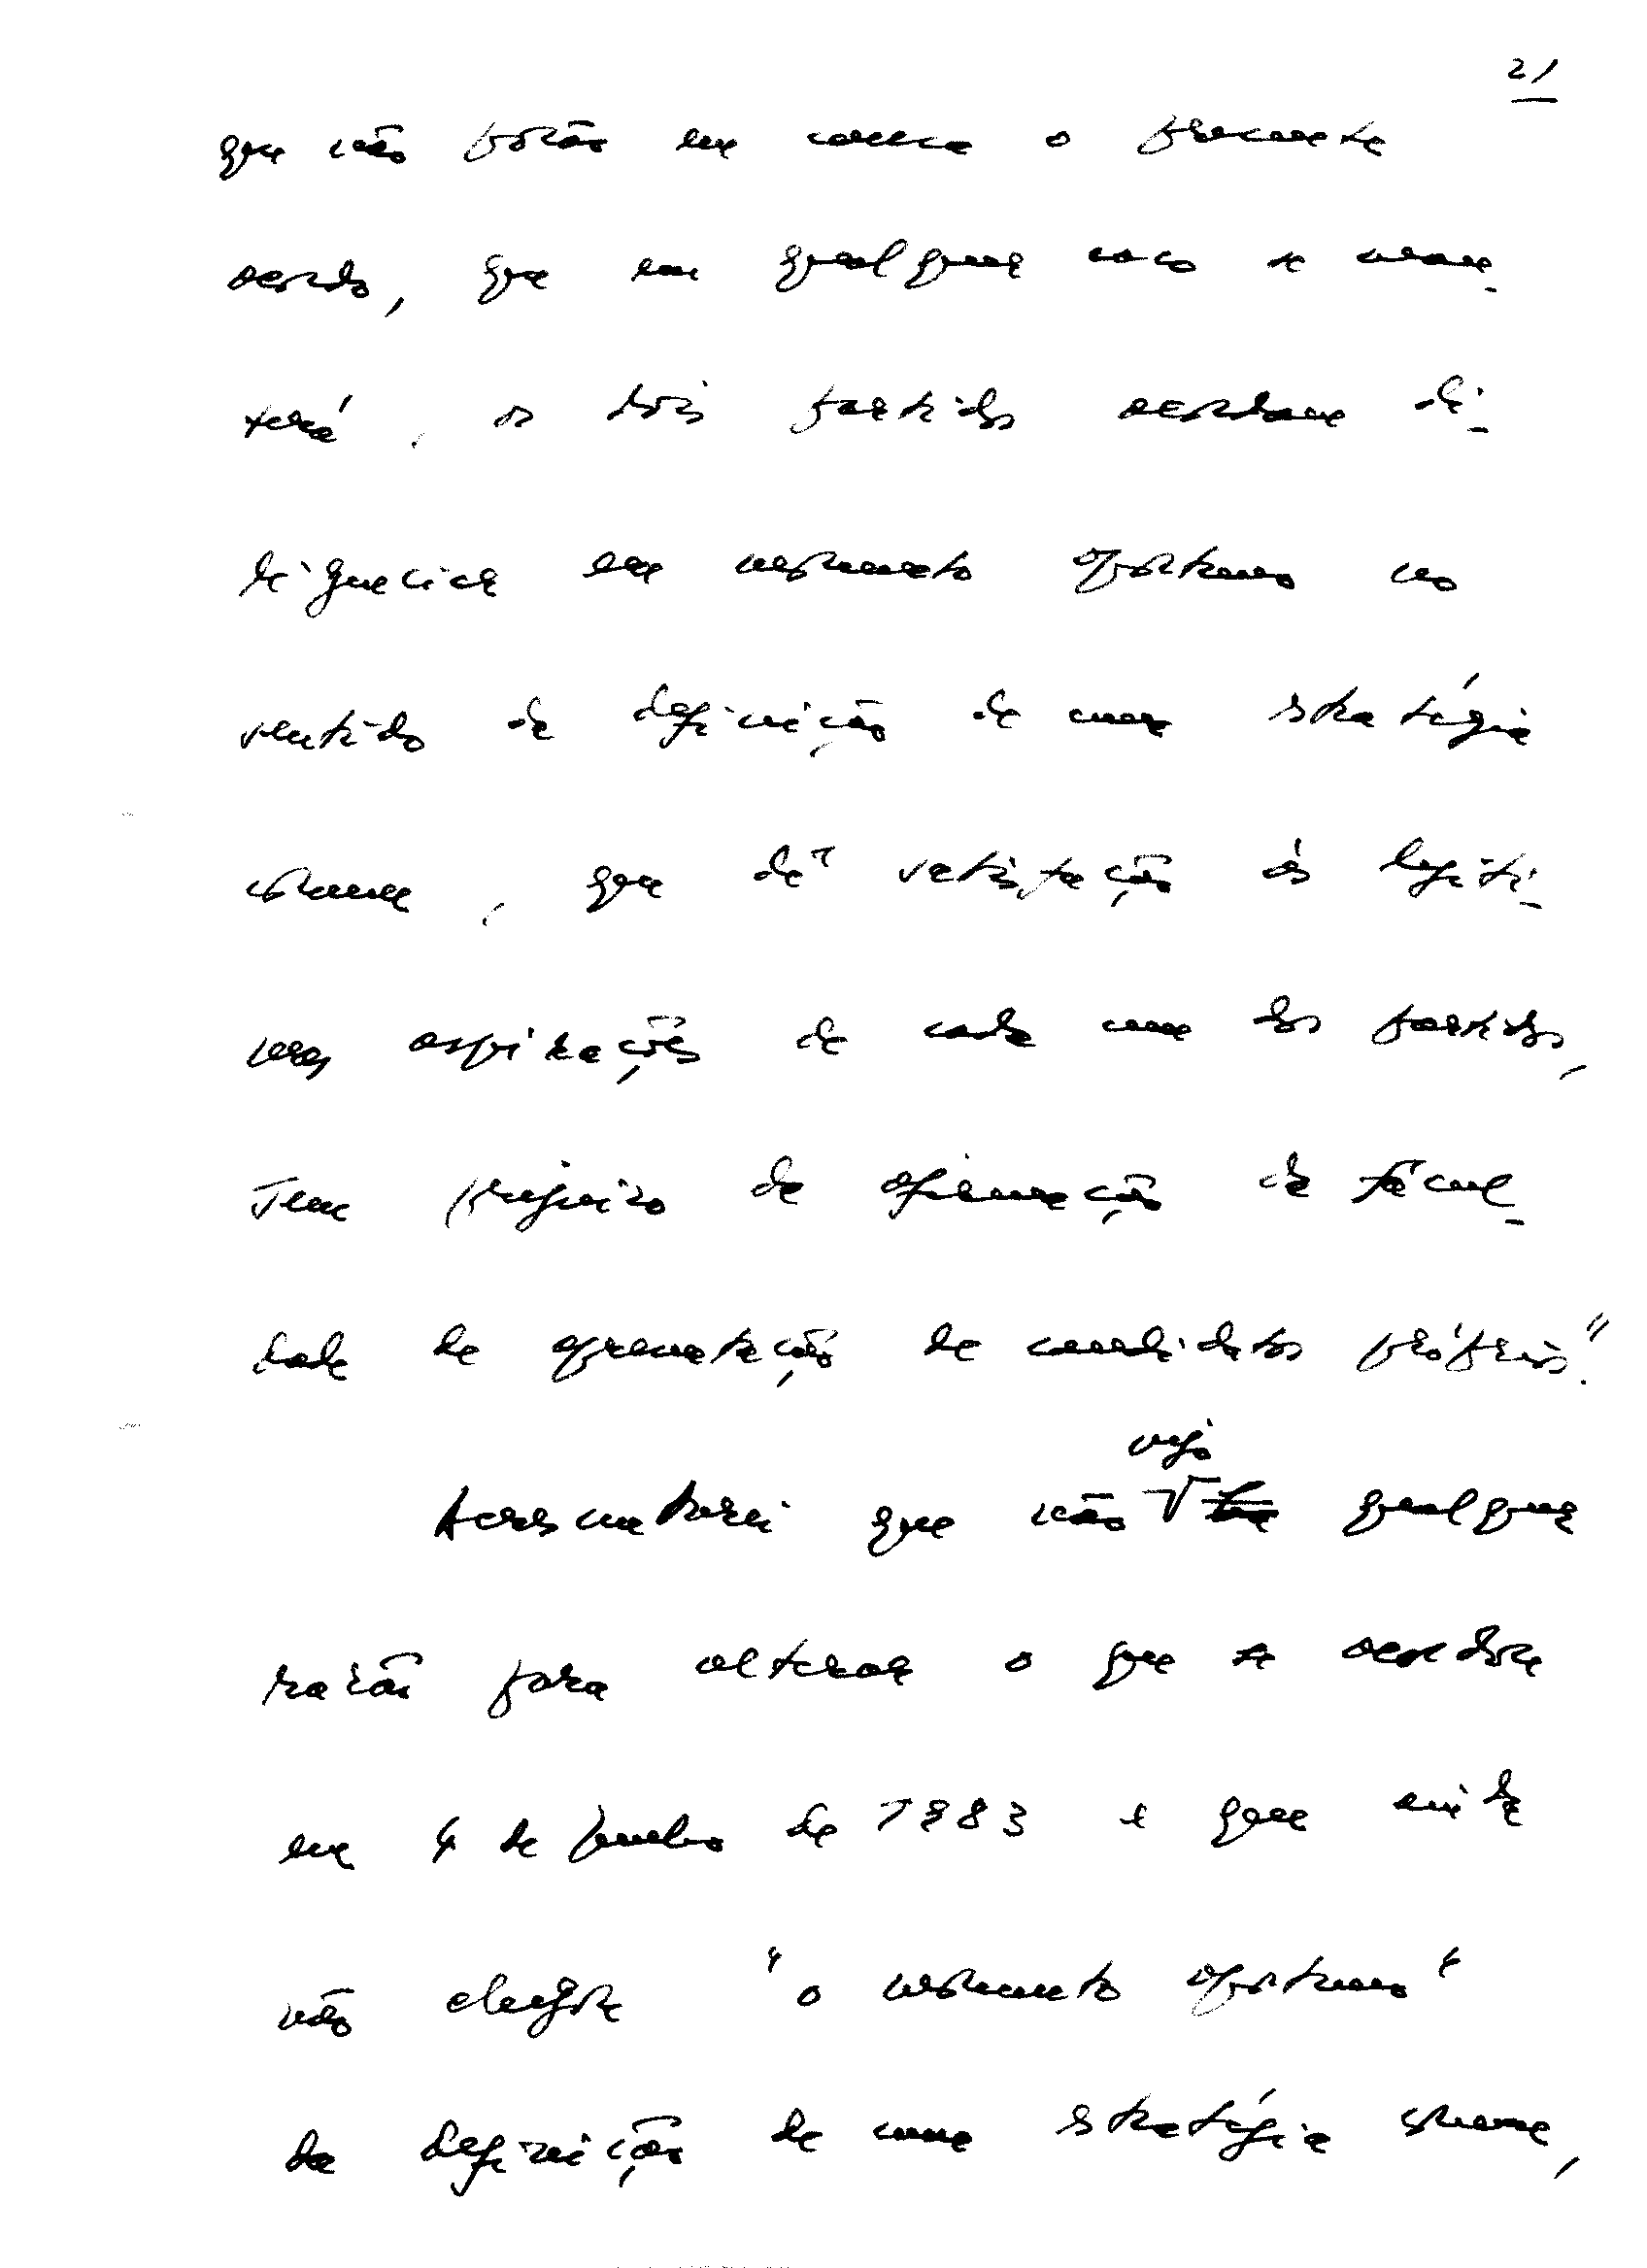 21
que não porão em causa o presente
acordo, que em qualquer caso se man-
terá, os dois partidos acordam di-
ligenciar em momento oportuno no
sentido de definição de uma estratégia
comum, que dê satisfação às legíti-
mas aspirações de cada um dos partidos,
sem prejuízo de afirmação da facul-
dade de apresentação de candidatos próprios."
Acrescentarei que não vejo qualquer
razão para alterar o que se acordou
em 4 de Junho de 1983 e que ainda
não chegou "o momento oportuno"
da definição de uma estratégia comum,